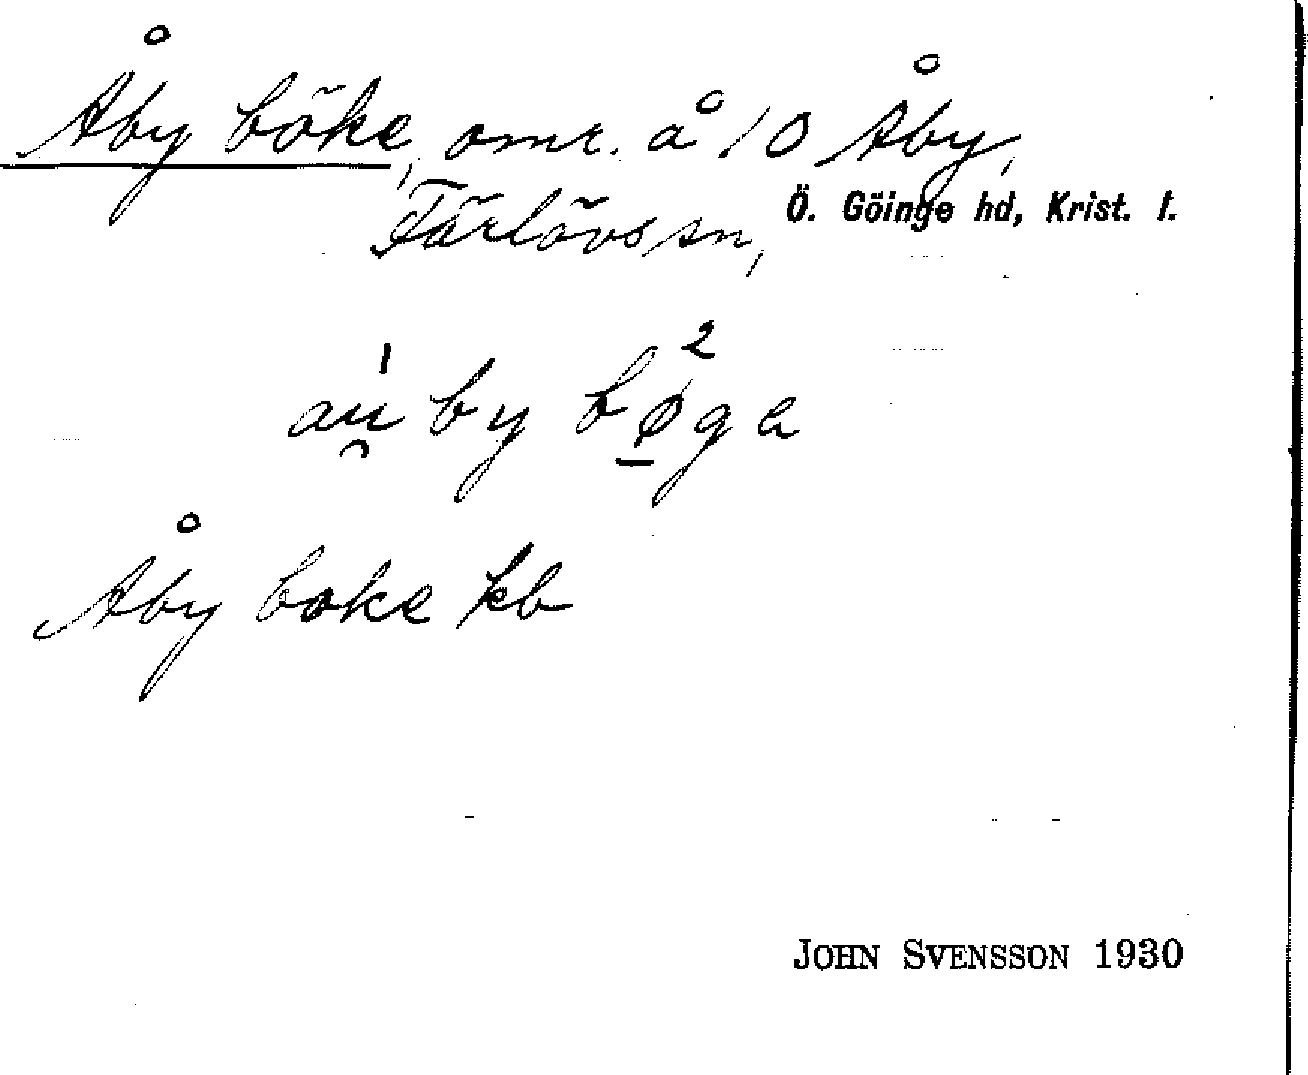 Åby böke, omr. å 10 Åby,
Färlövs sn, Ö. Göinge hd, Krist. l.
au̯ˈ by bø̱²ge
Åby boke kb
JOHN SVENSSON 1930